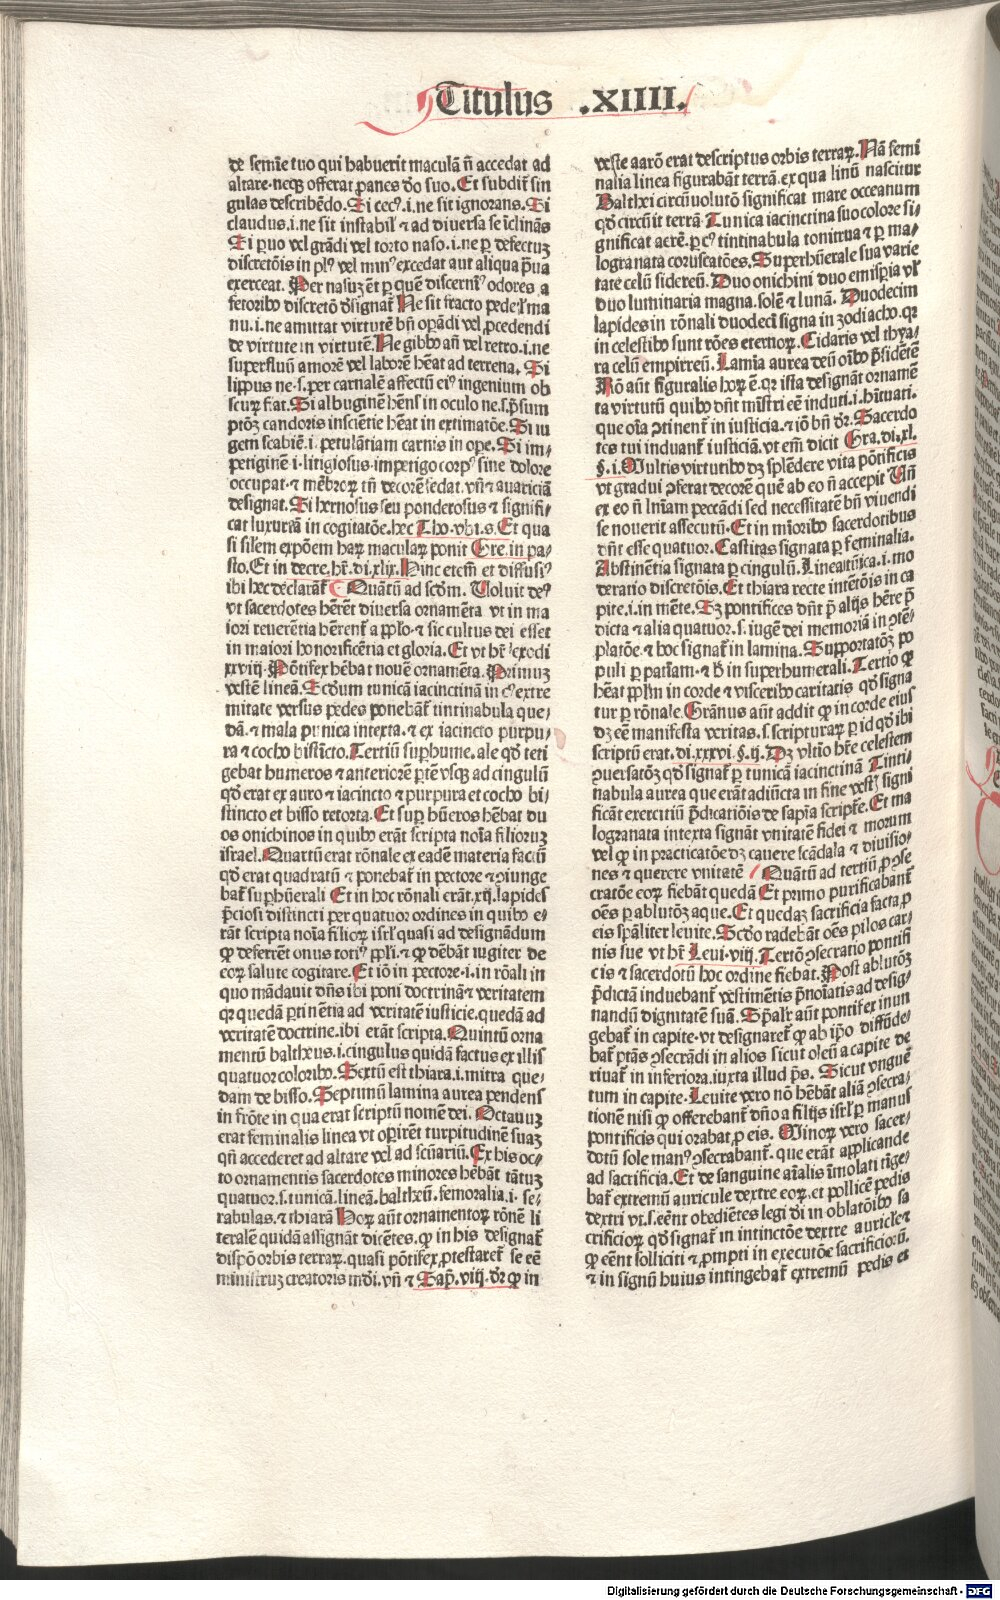 Titulus .XIIII.
de semīe tuo qui habuerit maculā n̄ accedat ad
altare·neqꝫ offerat panes dō suo. Et subdit̄ sin
gulas describēdo. Si cecꝰ.i.ne sit ignorans. Si
claudus.i.ne sit instabil̓ ⁊ ad diuersa se īclinās
Si puo vel grādi vel torto naso.i.ne ꝑ defectuꝫ
discretōis in plꝰ vel minꝰ excedat aut aliqua p̄ua
exerceat. Per nasuꝫ em̄ ꝑ quē discernim̄ odores a
fetoribꝰ discretō dsignat̄ Ne sit fracto pede l̓ ma
nu.i.ne amittat virtutē bn̄ opādi vel ꝓcedendi
de virtute in virtutē. Ne gibbo an̄ vel retro.i.ne
superfluū amorē vel laborē hēat ad terrena. Si
lippus ne.s.per carnalē affectū eiꝰ ingenium ob
scurꝫ fiat. Si albuginē hēns in oculo ne.s.p̄sum
ptōꝫ candoris inscientie hēat in extimatōe. Si iu
gem scabiē.i.petulātiam carnis in ope. Si im-
petiginē.i.litigiosus.impetigo corpꝰ sine dolore
occupat.⁊ mēbroꝝ tn̄ decorē fedat.vn̄ ⁊ auariciā
designat. Si herniosus seu ponderosus ⁊ signifi-
cat luxuriā in cogitatōe.hec Tho.vbi.s. Et qua
si sil̓em expōem haꝝ maculaꝝ ponit Gre.in pa-
sto. Et in decre.hr̄.di.xlix. Hinc etem̄ et diffusiꝰ
ibi hec declarāt̄ Quātū ad scd̓m. Voluit deꝰ
vt sacerdotes hērēt diuersa ornamēta vt in ma
iori reuerētia hērent̄ a pplo ⁊ sic cultus dei esset
in maiori honorificētia et gloria. Et vt hr̄ exodi
xxviij. Pōtifex hēbat nouē ornamēta. Primuꝫ
vestē lineā. Scd̓um tunicā iacinctinā in cꝰ extre
mitate versus pedes ponebāt̄ tintinabula que-
dā.⁊ mala punica intexta.⁊ ex iacincto purpu-
ra ⁊ cocho bistīcto. Tertiū suphume.ale qd̓ teti
gebat humeros ⁊ anteriorē ꝑtē vsqꝫ ad cingulū
qd̓ erat ex auro ⁊ iacincto ⁊ purpura et cocho bi-
stincto et bisso retorta. Et suꝑ hūeros hēbat du
os onichinos in quibꝰ erāt scripta noīa filioruꝫ
israel. Quartū erat rōnale ex eadē materia factū
qd̓ erat quadratū ⁊ ponebat̄ in pectore ⁊ ↄiunge
bat̄ suphūerali Et in hoc rōnali erāt.xij.lapides
p̄ciosi distincti per quatuor ordines in quibꝰ e-
rāt scripta noīa filioꝝ isrl̓ quasi ad designādum
ꝙ deferrēt onus totiꝰ ppli.⁊ ꝙ dēbāt iugiter de
eoꝝ salute cogitare. Et iō in pectore.i.in rōali in
quo mādauit dn̄s ibi poni doctrinā ⁊ veritatem
qꝛ quedā ꝑtinētia ad veritatē iusticie.quedā ad
veritatē doctrine.ibi erāt scripta. Quintū orna
mentū baltheus.i.cingulus quidā factus ex illis
quatuor coloribꝰ. Sextū est thiara.i.mitra que-
dam de bisso. Septimū lamina aurea pendens
in frōte in qua erat scriptū nomē dei. Octauuꝫ
erat feminalis linea vt opirēt turpitudinē suaꝫ
qn̄ accederet ad altare vel ad scūariū. Ex his oc-
to ornamentis sacerdotes minores hēbāt tātuꝫ
quatuor.s.tunicā.lineā.baltheū.femoralia.i.se-
rabulas.⁊ thiarā Hoꝝ aūt ornamentoꝝ rōnē li
teralē quidā assignāt dicētes.ꝙ in his designat̄
dispō orbis terraꝝ.quasi pōtifex ꝓtestaret̄ se eē
ministruꝫ creatoris mdi.vn̄ ⁊ Sap̄.viij.dr̄ ꝙ in
veste aarō erat descriptus orbis terraꝝ. Nā femi
nalia linea figurabāt terrā.ex qua linū nascitur
Balthei circūuolutō significat mare occeanum
qd̓ circūit terrā Tunica iacinctina suo colore si-
gnificat aerē.ꝑ cꝰ tintinabula tonitrua ⁊ ꝑ ma-
logranata coruscatōes. Superhūerale sua varie
tate celū sidereū. Duo onichini duo emispia vl̓
duo luminaria magna.solē ⁊ lunā. Duodecim
lapides in rōnali duodecī signa in zodiacho.qꝛ
in celestibꝰ sunt rōes eternoꝝ. Cidaris vel thya-
ra celū empirreū. Lamīa aurea deū oībꝰ p̄sidētē
Rō aūt figuralis hoꝝ ē.qꝛ ista designāt ornamē
ta virtutū quibꝰ dn̄t mīstri eē induti.i.hītuati.
que oīa ꝑtinent̄ in iusticia.⁊ iō bn̄ dr̄. Sacerdo
tes tui induant̄ iusticiā.vt em̄ dicit Gra.di.xl.
§.i. Multis virtutibꝰ dꝫ splēdere vita pōtificis
vt gradui ↄferat decorē quē ab eo n̄ accepit Un̄
ex eo n̄ lnīam peccādi sed necessitatē bn̄ viuendi
se nouerit assecutū. Et in mīoribꝰ sacerdotibus
dn̄t esse quatuor. Castitas signata ꝑ feminalia.
Abstinētia signata ꝑ cingulū. Linea tūica.i.mo
deratio discretōis. Et thiara recte intētōis in ca
pite.i.in mēte. Sꝫ pontifices dn̄t p̄ alijs hēre p̄
dicta ⁊ alia quatuor.s.iugē dei memoriā in ↄtē-
platōe.⁊ hoc signat̄ in lamina. Supportatōꝫ po
puli ꝑ patiam.⁊ h̄ in superhumerali. Tertio ꝙ
hēat pplm in corde ⁊ visceribꝰ caritatis qd̓ signa
tur ꝑ rōnale. Grānus aūt addit ꝙ in corde eius
dꝫ eē manifesta veritas.s.scripturaꝝ ꝑ id qd̓ ibi
scriptū erat.di.xxxvi.§.ij. Dꝫ vltīo hr̄e celestem
ↄuersatōꝫ qd̓ signat̄ ꝑ tunicā iacinctinā Tinti-
nabula aurea que erāt adiūcta in fine vestꝫ signi
ficāt exercitiū p̄dicatiōis de sapīa scripte. Et ma
logranata intexta signāt vnitatē fidei ⁊ morum
vel ꝙ in practicatōe dꝫ cauere scādala ⁊ diuisio-
nes ⁊ querere vnitatē Quātū ad tertiū ꝓ ↄse
cratōe eoꝝ fiebāt quedā Et primo purificabant̄
oēs ꝑ ablutōꝫ aque. Et quedaꝫ sacrificia facta ꝓ
eis sp̄aliter leuite. Scd̓o radebāt oēs pilos car-
nis sue vt hr̄ Leui.viij. Tertō ↄsecratio pontifi
cis ⁊ sacerdotū hoc ordine fiebat. Post ablutōꝫ
p̄dictā induebant̄ vestimētis p̄noīatis ad desig-
nandū dignitatē suā. Sp̄alr̄ aūt pontifex inun
gebat̄ in capite.vt designaret̄ ꝙ ab ip̄o diffūde-
bat̄ ptās ↄsecrādi in alios sicut oleū a capite de
riuat̄ in inferiora.iuxta illud ps. Sicut vnguē
tum in capite. Leuite vero nō hēbāt aliā ↄsecra-
tionē nisi ꝙ offerebant̄ dn̄o a filijs isrl̓ ꝑ manus
pontificis qui orabat ꝓ eis. Minoꝝ vero sacer-
dotū sole manꝰ ↄsecrabant̄.que erāt applicande
ad sacrificia. Et de sanguine aīalis īmolati tīge-
bat̄ extremū auricule dextre eoꝝ.et pollicē pedis
dextri vt.s.eēnt obediētes legi di in oblatōibꝰ sa
crificioꝝ qd̓ signat̄ in intinctōe dextre auricl̓e ⁊
ꝙ eēnt solliciti ⁊ ꝓmpti in executōe sacrificiorū.
⁊ in signū huius intingebat̄ extremū pedis et
Digitalisierung gefördert durch die Deutsche Forschungsgemeinschaft - DFG